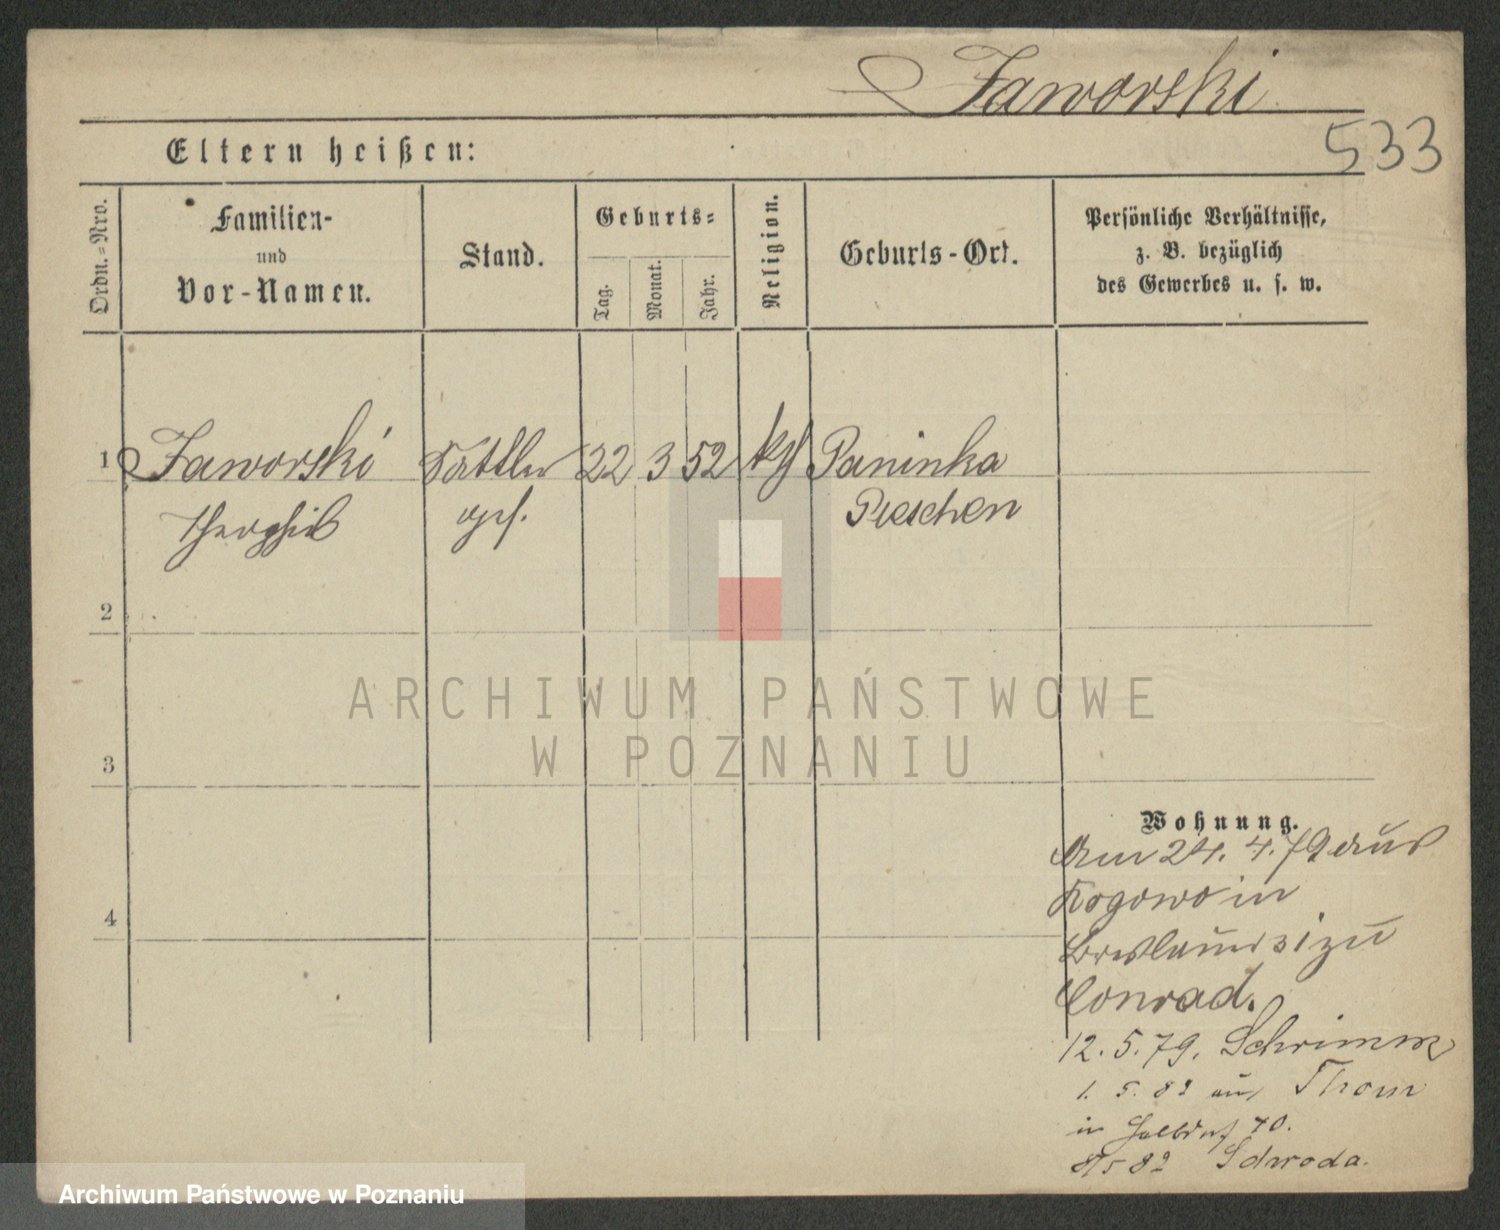 Jaworski
533
Eltern heißen:
Ordn.-Nro.
Familien-
und
Vor-Namen.
Stand.
Geburts-
Tag.
Monat.
Jahr.
Religion.
Geburts-Ort.
Persönliche Verhältnisse,
z. B. bezüglich
des Gewerbes u. s. w.
1 Jaworski Sattler 22 3 52 kath Paninka
Theophil ges. Pleschen
2
3
4
Wohnung.
Am 24. 4. 79 aus
Rogowo in
Breslauer 31 zu
Conrad.
12. 5. 79. Schrimm
1. 5. 82 aus Thorn
in Halbdorf 70.
8/5 82 Schroda.
ARCHIWUM PAŃSTWOWE
W POZNANIU
Archiwum Państwowe w Poznaniu